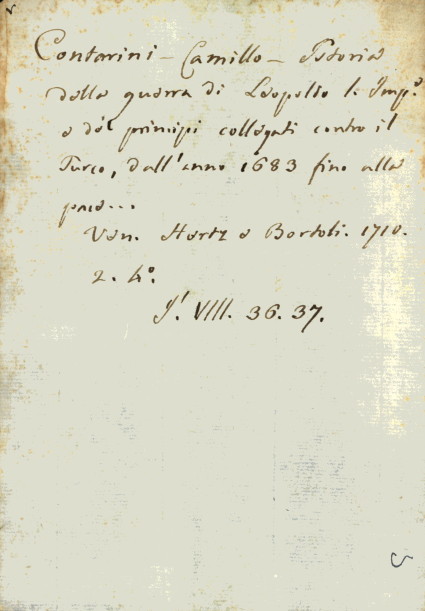 Contarini - Camillo - Istoria
della guerra di Leopoldo I. Imp.e
e de' principi collegati contro il
Turco, dall'anno 1683 fino alla
pace...
Ven. Hertz e Bortoli. 1710.
2. 4°.
VIII. 36. 37.